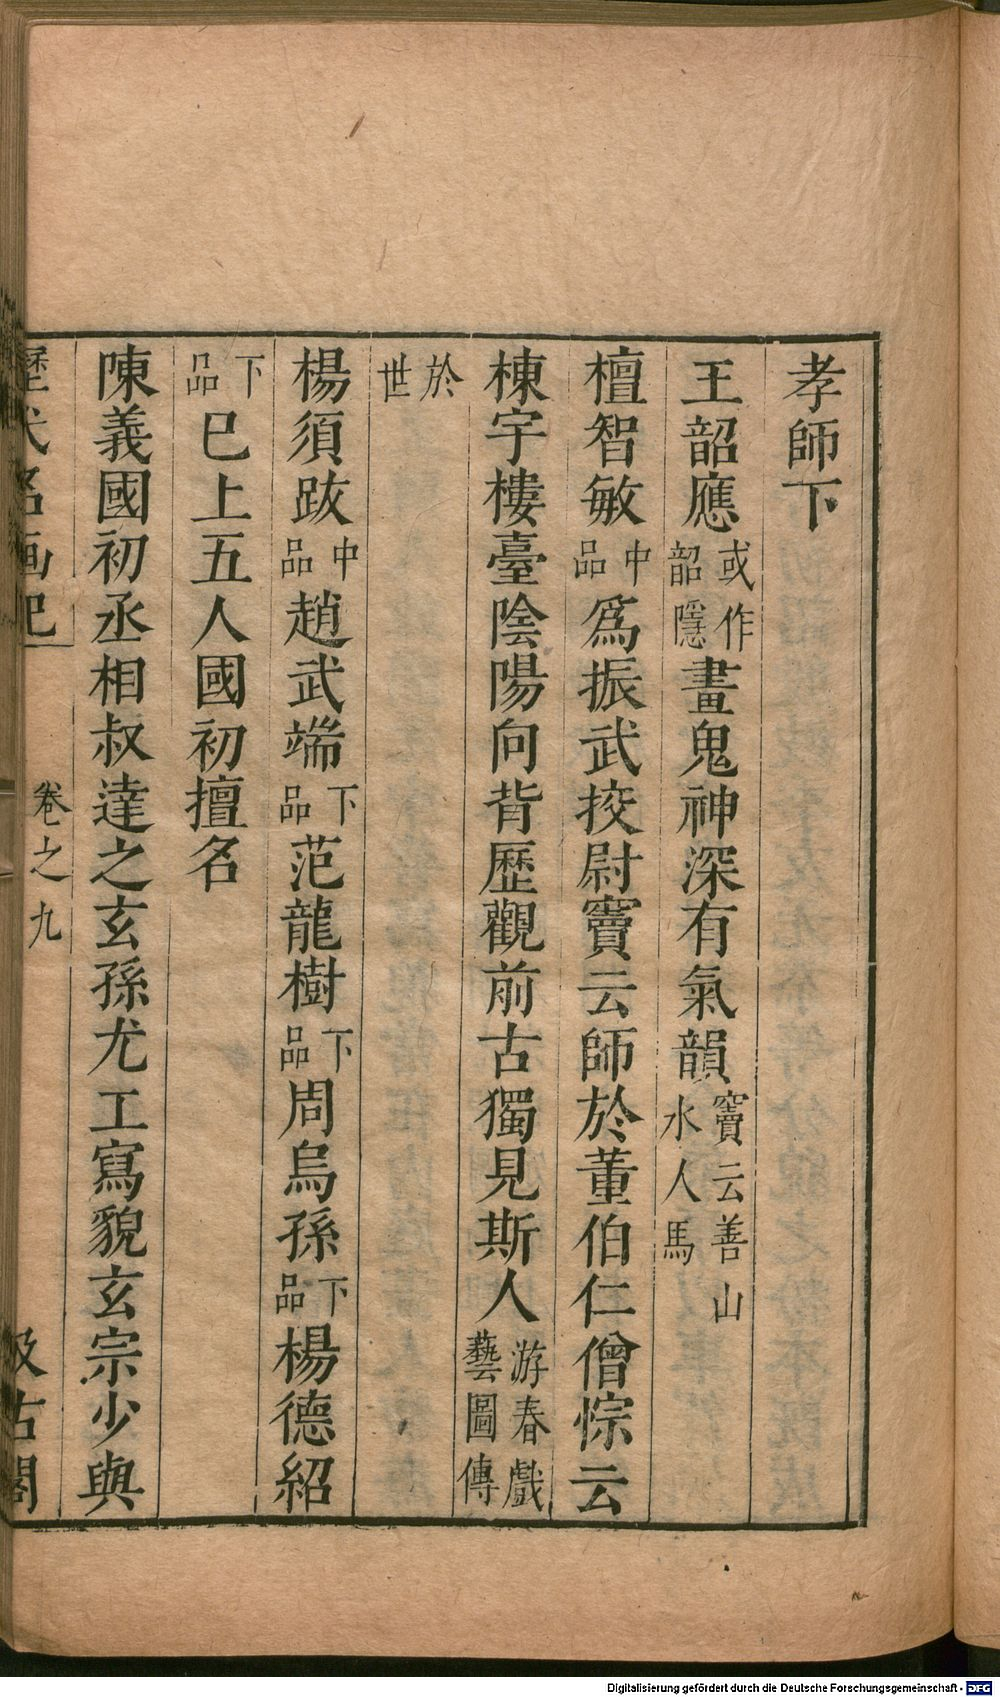 孝師下
王韶應或作韶隱畫鬼神深有氣韻竇云善山水人馬
檀智敏中品爲振武挍尉竇云師於董伯仁僧悰云
棟宇樓臺陰陽向背歷觀前古獨見斯人游春戲藝圖傳
於世
楊須跋中品趙武端下品范龍樹下品周烏孫下品楊德紹
下品巳上五人國初擅名
陳義國初丞相叔達之玄孫尤工寫貌玄宗少與
歷代名画記
卷之九
汲古閣
Digitalisierung gefördert durch die Deutsche Forschungsgemeinschaft - DFG